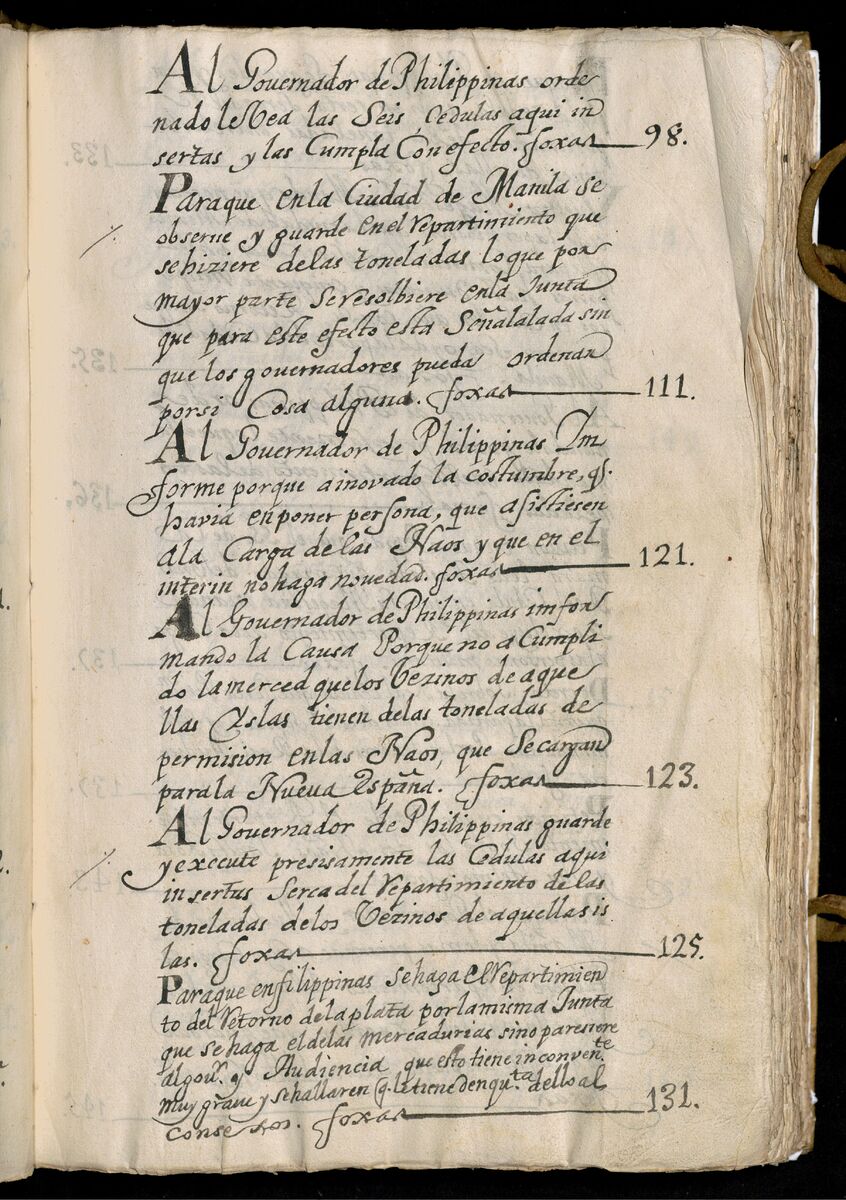 Al Governador de Philippinas orde
nadole Vea las Seis Cedulas aqui in
sertas y las Cumpla Con efecto. foxas 98.
Paraque enla Ciudad de Manila se
obserue y guarde en el repartimiento que
sehiziere delas toneladas loque por
mayor parte seresolbiere enla Junta
que para este efecto esta Señalalada sin
que los governadores pueda ordenar
porsi Cosa alguna. foxas 111.
Al Governador de Philippinas Im
forme porque a inovado la costumbre, q̃.
havia en poner persona, que asistiesen
ala Carga de las Naos y que en el
interin no haga novedad. foxas 121.
Al Governador de Philippinas imfor
mando la Causa Porque no a Cumpli
do la merced quelos Vezinos de aque
llas Yslas tienen delas toneladas de
permision enlas Naos, que Secargan
parala Nueva España. foxas 123.
Al Governador de Philippinas guarde
y execute presisamente las Cedulas aqui
insertas Serca del repartimiento de las
toneladas delos Vezinos de aquellas is
las. foxas 125.
Paraque en filippinas sehaga el repartimien
to del retorno dela plata por la misma Junta
que se haga el delas mercadurias sino paresiere
al gour. y Audiencia que esto tiene inconvente
muy graue y se hallaren q. le tiene den qta. dello al
Consexo. foxas 131.